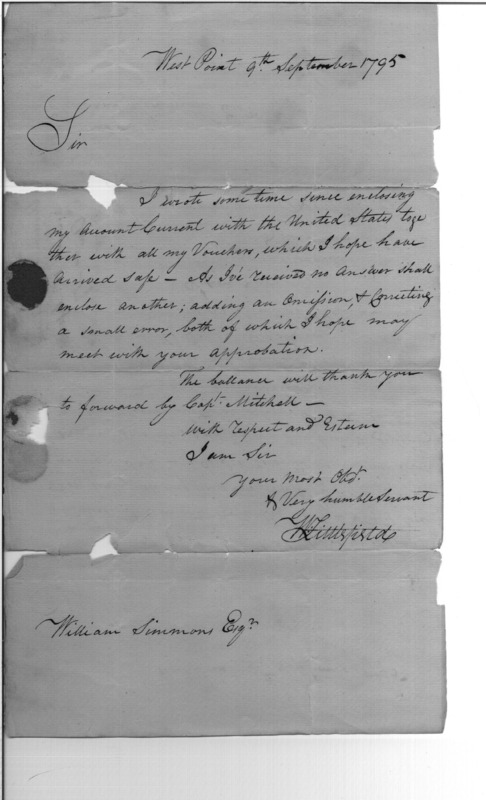 West Point 9th September 1795
Sir
I wrote some time since enclosing
my Account Current with the United States toge
ther with all my Vouchers, which I hope have
Arrived safe – As I've received no Answer shall
enclose another; adding an Omission, & Correcting
a small error, both of which I hope may
meet with your Approbation.
The ballance will thank you
to forward by Capt. Mitchell –
With respect and Esteem
I am Sir
your most Obdt.
& Very humble Servant
W Littlefield
William Simmons Esqr.